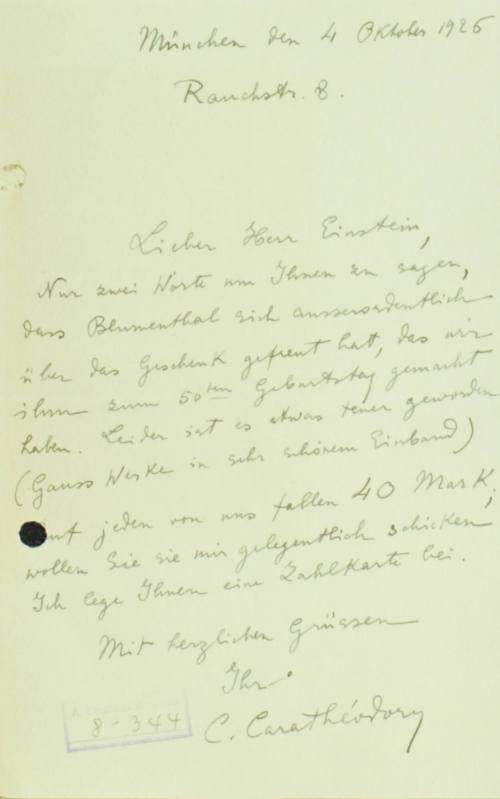 München den 4 Oktober 1926
Rauchstr. 8.
Lieber Herr Einstein,
Nur zwei Worte um Ihnen zu sagen,
dass Blumenthal sich ausserordentlich
über das Geschenk gefreut hatt, das wir
ihm zum 50ten Geburtstag gemacht
haben. Leider ist es etwas teuer geworden
(Gauss Werke in sehr schönem Einband)
auf jeden von uns fallen 40 Mark;
wollen Sie sie mir gelegentlich schicken
Ich lege Ihnen eine Zahlkarte bei.
Mit herzlichen Grüssen
Ihr
C. Carathéodory
8-344